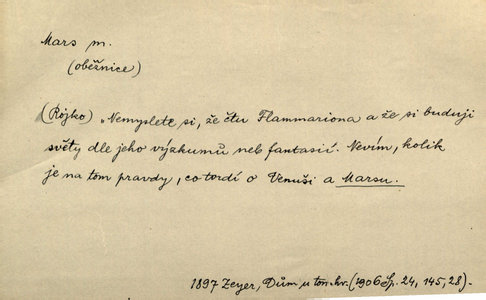 Mars m.
(oběžnice)
(Rojko) „Nemyslete si, že čtu Flammariona a že si buduji
světy dle jeho výzkumů neb fantasií. Nevím, kolik
je na tom pravdy, co tvrdí o Venuši a Marsu.
1897 Zeyer, Dům u ton. hv. (1906 Sp. 24, 145, 28).